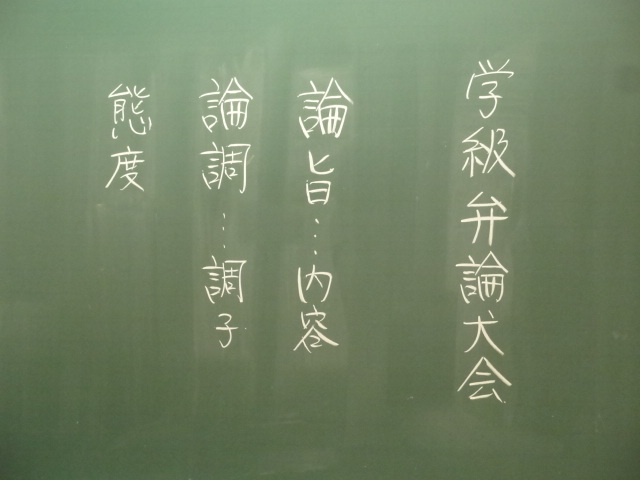 学級弁論大会
論旨…内容
論調…調子
態度